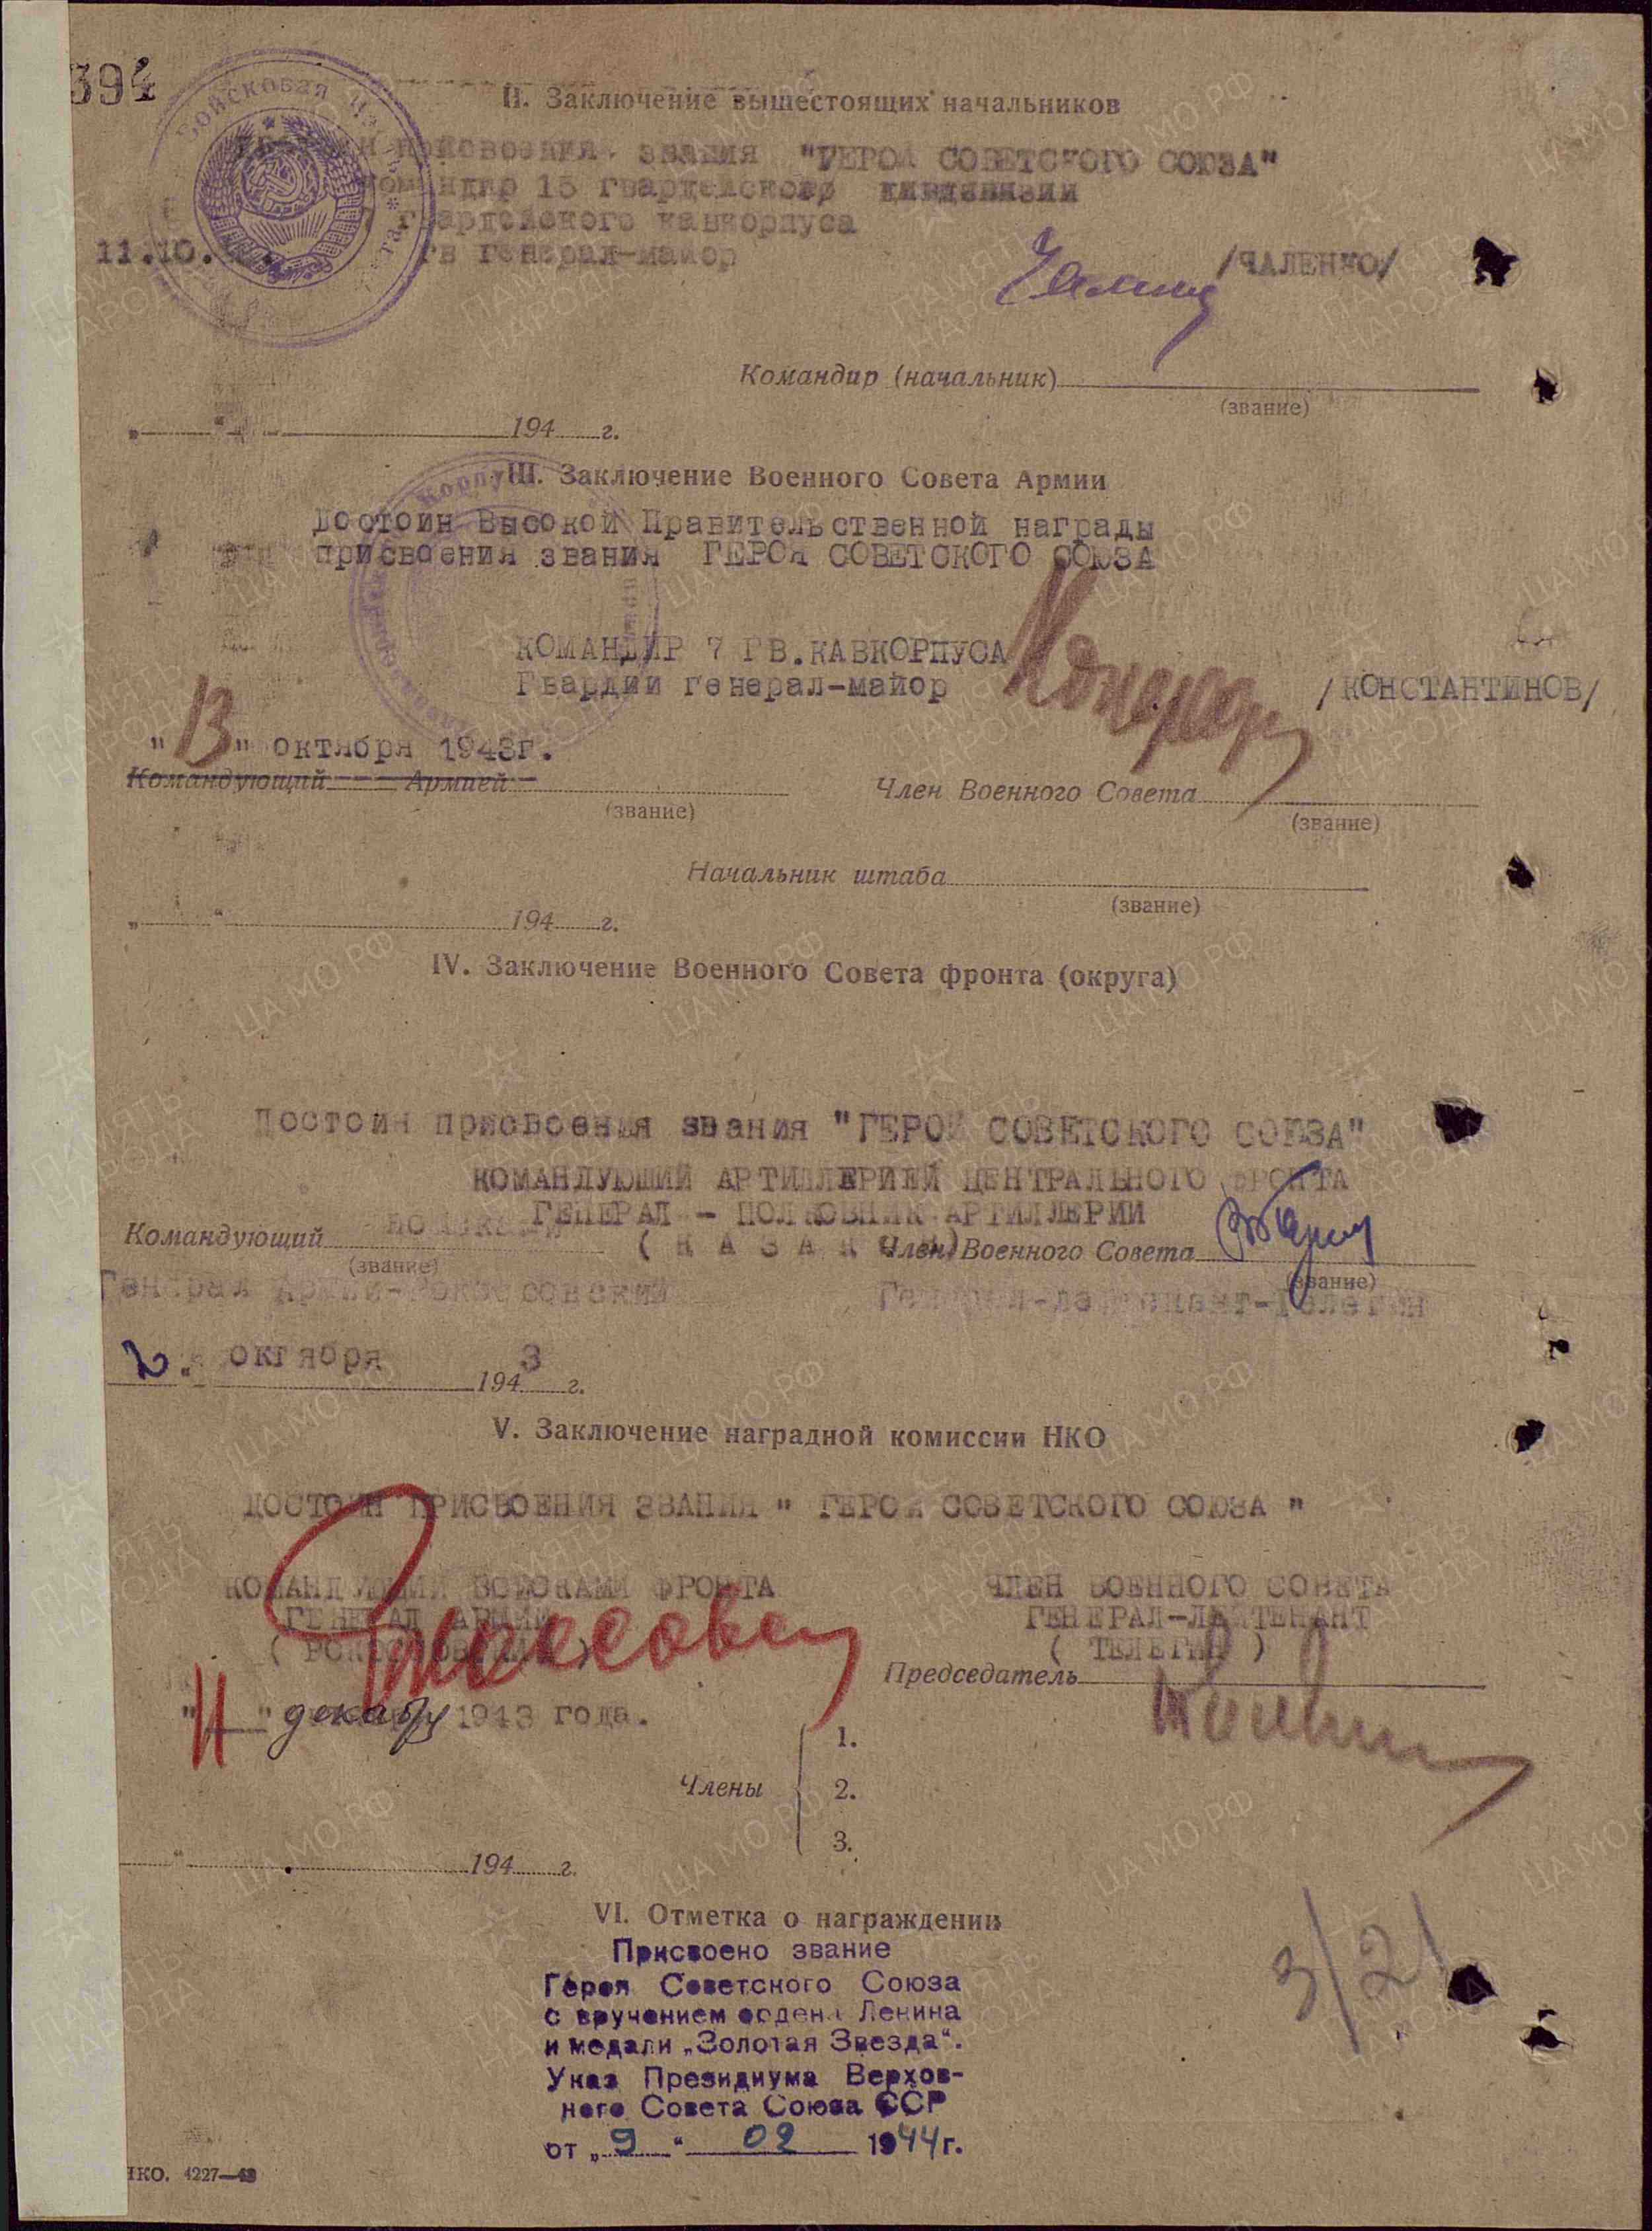 394
II. Заключение вышестоящих начальников
присвоения звания "ГЕРОЯ СОВЕТСКОГО СОЮЗА"
Командир 15 гвардейской кавдивизии
гвардейского кавкорпуса
11.10. гв генерал-майор /ЧАЛЕНКО/
Командир (начальник)
(звание)
" " 194 г.
III. Заключение Военного Совета Армии
Достоин Высокой Правительственной награды
присвоения звания ГЕРОЯ СОВЕТСКОГО СОЮЗА
КОМАНДИР 7 ГВ.КАВКОРПУСА
Гвардии генерал-майор /КОНСТАНТИНОВ/
"13" октября 1943г.
Командующий Армией
(звание)
Член Военного Совета
(звание)
Начальник штаба
(звание)
" " 194 г.
IV. Заключение Военного Совета фронта (округа)
Достоин присвоения звания "ГЕРОЙ СОВЕТСКОГО СОЮЗА"
КОМАНДУЮЩИЙ АРТИЛЛЕРИЕЙ ЦЕНТРАЛЬНОГО ФРОНТА
ГЕНЕРАЛ - ПОЛКОВНИК АРТИЛЛЕРИИ
( К А З А К О В )
Командующий Член Военного Совета
(звание) (звание)
Генерал Армии-Рокоссовский Генерал-лейтенант-Телегин
октября 1943 г.
V. Заключение наградной комиссии НКО
ДОСТОИН ПРИСВОЕНИЯ ЗВАНИЯ " ГЕРОЯ СОВЕТСКОГО СОЮЗА "
КОМАНДУЮЩИЙ ВОЙСКАМИ ФРОНТА ЧЛЕН ВОЕННОГО СОВЕТА
ГЕНЕРАЛ АРМИИ ГЕНЕРАЛ-ЛЕЙТЕНАНТ
( РОКОССОВСКИЙ ) ( ТЕЛЕГИН )
Председатель
"11" декабря 1943 года.
Члены
1.
2.
3.
" 194 г.
VI. Отметка о награждении
Присвоено звание
Героя Советского Союза
с вручением ордена Ленина
и медали „Золотая Звезда“.
Указ Президиума Верхов-
ного Совета Союза ССР
от „9“ 02 1944г.
3/21
НКО. 4227—43